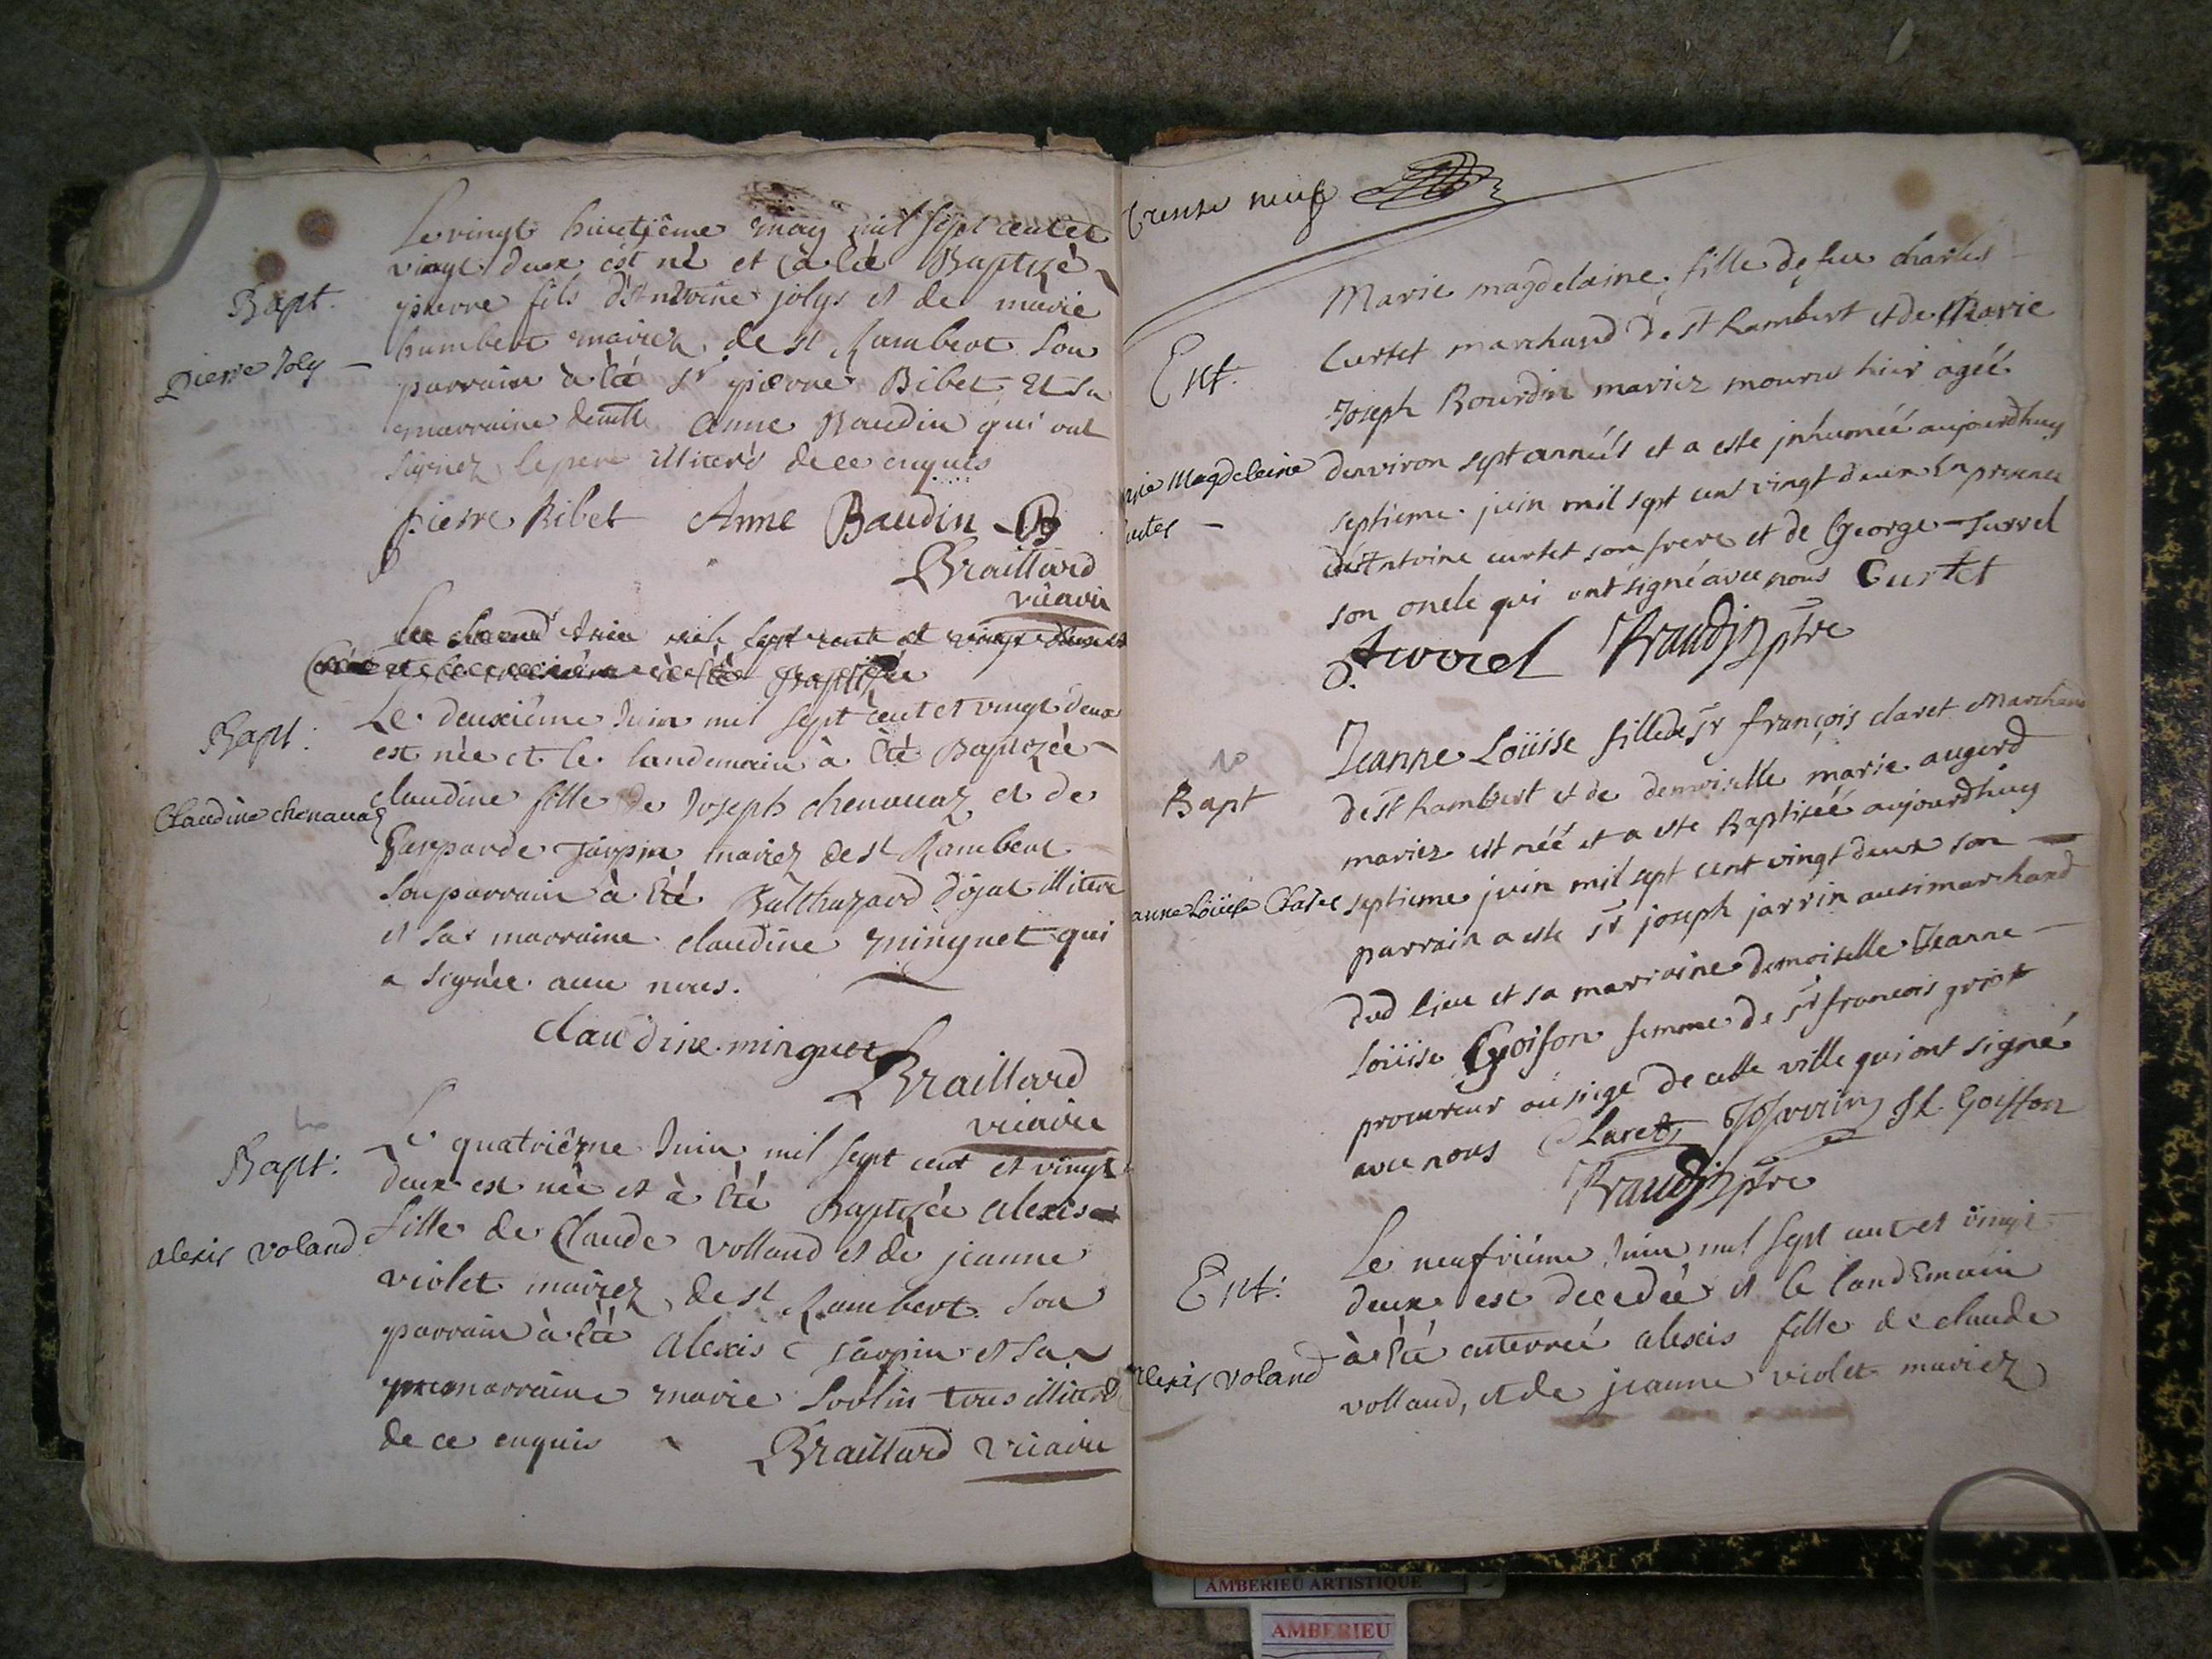 Le vingt huictiême may mil sept cent et
vingt deux est né et à été Baptizé
Bapt.
pierre fils d'Antoine jolys et de marie
humbert mariez de st Rambert son
Pierre Joly
parrain à été sr pierre Bibet Et sa
marraine demlle Anne Baudin qui ont
signez le pere illiteré de ce enquis
pierre Bibet Anne Baudin B
Braillard
vicaire
juin mil sept cent et vingt deux
à été Baptizée
Le deuxiême Juin mil sept cent et vingt deux
Bapt:
est née et le landemain à été Baptizée
claudine fille de Joseph chenavaz et de
Claudine chenavaz
Gasparde Jarpin mariez de st Rambert
son parrain à été Balthazard dijat illiteré
et sa marraine claudine minguet qui
a signée avec nous.
claudine minguet
Braillard
vicaire
Le quatriême Juin mil sept cent et vingt
Bapt:
deux est née et à été Baptizée alexis
fille de Claude volland et de jeanne
alexis voland
violet mariez de st Rambert son
parrain à été alexis jarpin et sa
marraine marie Sorlin tous illiterés
de ce enquis
Braillard vicaire
trente neuf
Marie magdelaine fille de feu charles
Curtet marchand de st Rambert et de Marie
Ent.
Joseph Bourdin mariez mourut hier agéé
denviron sept annéés et a este jnhuméé aujourdhuy
rie Magdeleine
septieme juin mil sept cent vingt deux En presence
urtet
dAntoine curtet son frere et de George Jurrel
son oncle qui ont signé avec nous Curtet
Baudin ptre
Jeanne Loüise fille de sr françois claret Marchand
de st Rambert et de demoiselle marie augerd
Bapt
mariez est néé et a este Baptiséé aujourdhuy
septieme juin mil sept cent vingt deux son
anne Loüise Claret
parrain a este sr joseph jarrin aussi marchand
dud lieu et sa marraine demoiselle Jeanne
Loüise Goison femme de sr francois griot
procureur au siege de cette ville qui ont signé
avec nous Claret J Jarrin J L Goiffon
Baudin ptre
Le neufviéme Juin mil sept cent et vingt
Ent:
deux est decedée et le landemain
à été enterreé alexis fille de claude
alexis voland
volland, et de jeanne violet mariez
AMBERIEU ARTISTIQUE
AMBERIEU